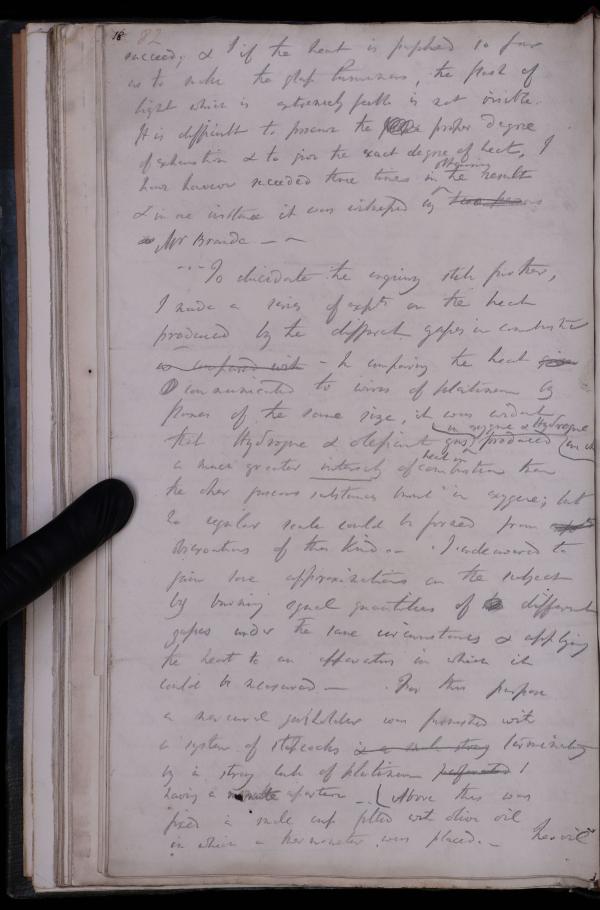 18 82
succeed; & if the heat is pushed so far
as to make the glass luminous, the flash of
light which is extremely feeble is not visible.
It is difficult to procure the proper degree
of exhaustion & to give the exact degree of heat, I
have however succeeded three times in obtaining the results
& in one instance it was witnessed by
Mr Brande — —
To elucidate the enquiry still further,
I made a series of expts on the heat
produced by the different gases in combustion
as compared with - In comparing the heat
communicated to wires of platinum by
flames of the same size, it was evident
that Hydrogne & olefiant gas in oxygene & Hydrogne produced
a much greater intensity of heat in combustion than
the other gaseous substances burnt in oxygene; but
no regular scale could be formed from
observations of this kind. — I endeavoured to
gain some approximations on the subject
by burning equal quantities of different
gases under the same circumstances & applying
the heat to an apparatus in which it
could be measured — For this purpose
a mercurial gasholder was furnished with
a system of stopcocks terminating
by a strong tube of platinum perforated
having a minute aperture — Above this was
fixed a small cup filled with olive oil
in which a thermometer was placed. — The oil